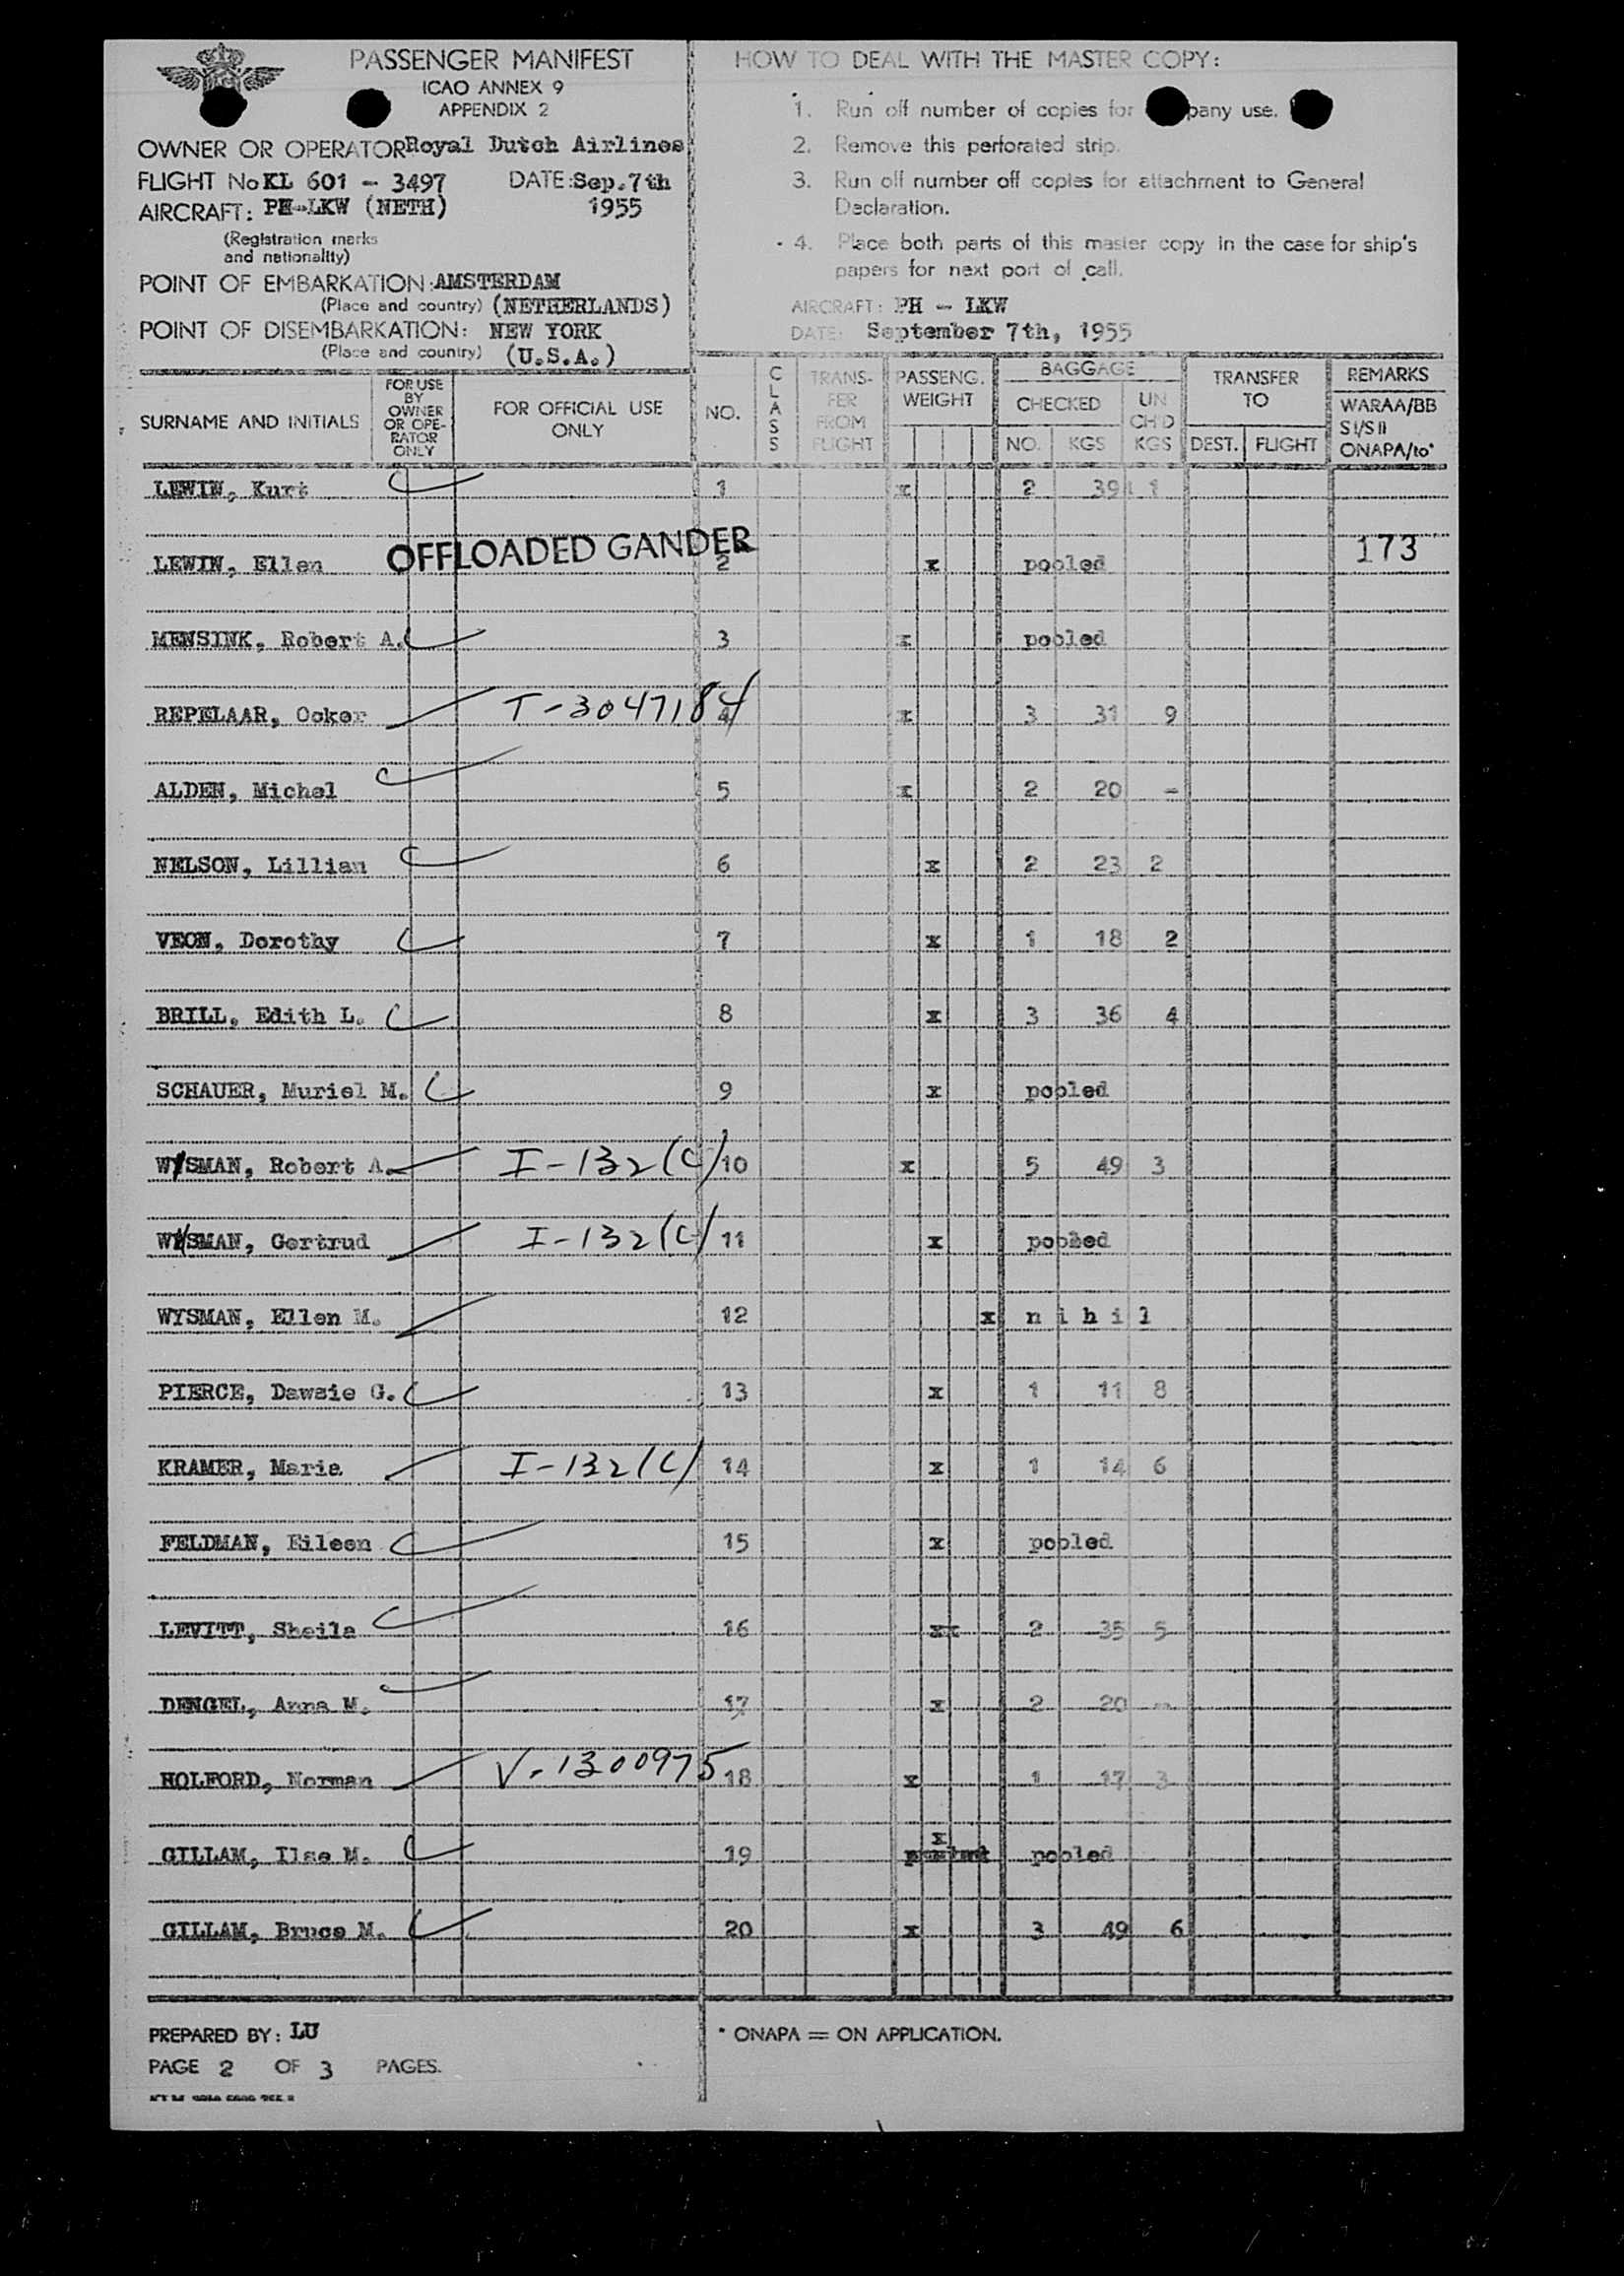 PASSENGER MANIFEST
ICAO ANNEX 9
APPENDIX 2
OWNER OR OPERATOR Royal Dutch Airlines
FLIGHT No KL 601 - 3497 DATE: Sep. 7th
AIRCRAFT: PH-LKW (NETH) 1955
(Registration marks
and nationality)
POINT OF EMBARKATION: AMSTERDAM
(Place and country) (NETHERLANDS)
POINT OF DISEMBARKATION: NEW YORK
(Place and country) (U.S.A.)
HOW TO DEAL WITH THE MASTER COPY:
1. Run off number of copies for pany use.
2. Remove this perforated strip.
3. Run off number off copies for attachment to General
Declaration.
4. Place both parts of this master copy in the case for ship's
papers for next port of call.
AIRCRAFT: PH - LKW
DATE: September 7th, 1955
SURNAME AND INITIALS
FOR USE
BY
OWNER
OR OPE-
RATOR
ONLY
FOR OFFICIAL USE
ONLY
NO.
CLASS
TRANS-
FER
FROM
FLIGHT
PASSENG.
WEIGHT
BAGGAGE
CHECKED
NO. KGS
UN
CH'D
KGS
TRANSFER
TO
DEST. FLIGHT
REMARKS
WARAA/BB
SI/SII
ONAPA/to*
LEWIN, Kurt 1 x 2 39 1
LEWIN, Ellen OFFLOADED GANDER 2 x pooled 173
MENSINK, Robert A. 3 x pooled
REPELAAR, Ocker T-3047184 4 x 3 31 9
ALDEN, Michel 5 x 2 20 -
NELSON, Lillian 6 x 2 23 2
VEON, Dorothy 7 x 1 18 2
BRILL, Edith L. 8 x 3 36 4
SCHAUER, Muriel M. 9 x pooled
WYSMAN, Robert A. I-132(C) 10 x 5 49 3
WYSMAN, Gertrud I-132(C) 11 x pooled
WYSMAN, Ellen M. 12 x n i h i l
PIERCE, Dawsie G. 13 x 1 11 8
KRAMER, Marie I-132(C) 14 x 1 14 6
FELDMAN, Eileen 15 x pooled
LEVITT, Sheila 16 xx 2 35 5
DENGEL, Anna M. 17 x 2 20 -
HOLFORD, Norman V-1300975 18 x 1 17 3
GILLAM, Ilse M. 19 x pooled
GILLAM, Bruce M. 20 x 3 49 6
PREPARED BY: LU
PAGE 2 OF 3 PAGES.
* ONAPA = ON APPLICATION.